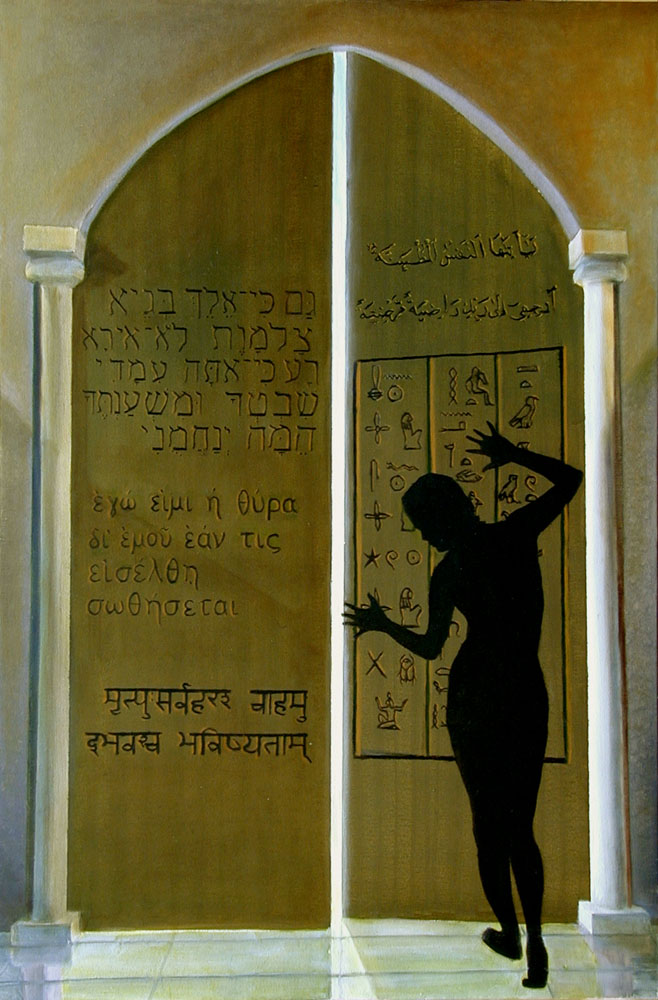 גַם כִּי־אֵלֵךְ בְּגֵיא
צַלְמָוֶת לֹא־אִירָא
רָע כִּי־אַתָּה עִמָּדִי
שִׁבְטְךָ וּמִשְׁעַנְתֶּךָ
הֵמָּה יְנַחֲמֻנִי
ἐγώ εἰμι ἡ θύρα
δι' ἐμοῦ ἐάν τις
εἰσέλθη
σωθήσεται
मृत्युःसर्वहरश्च वाहमु
द्भवश्च भविष्यताम्
يَا أَيَّتُهَا ٱلنَّفْسُ ٱلْمُطْمَئِنَّةُ
ٱرْجِعِي إِلَىٰ رَبِّكِ رَاضِيَةً مَرْضِيَّةً